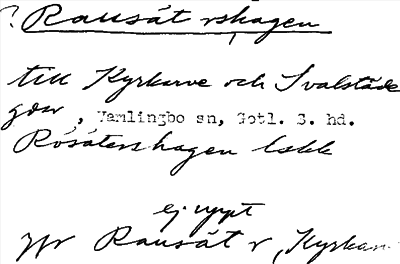 ? Rausät rshagen
till Kyrkurve och Svalstäde
gdar, Vamlingbo sn, Gotl. S. hd.
Rosätershagen lskk
ej nypt
jfr Rausät r, Kyrkan